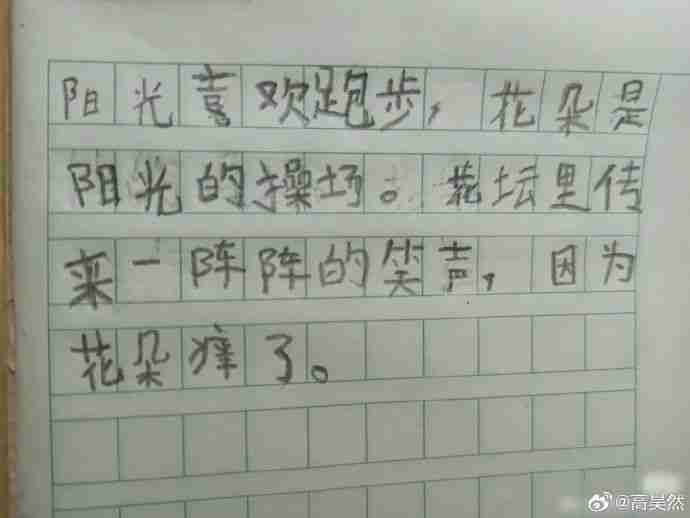 阳光喜欢跑步，花朵是
阳光的操场。花坛里传
来一阵阵的笑声，因为
花朵痒了。
@高昊然